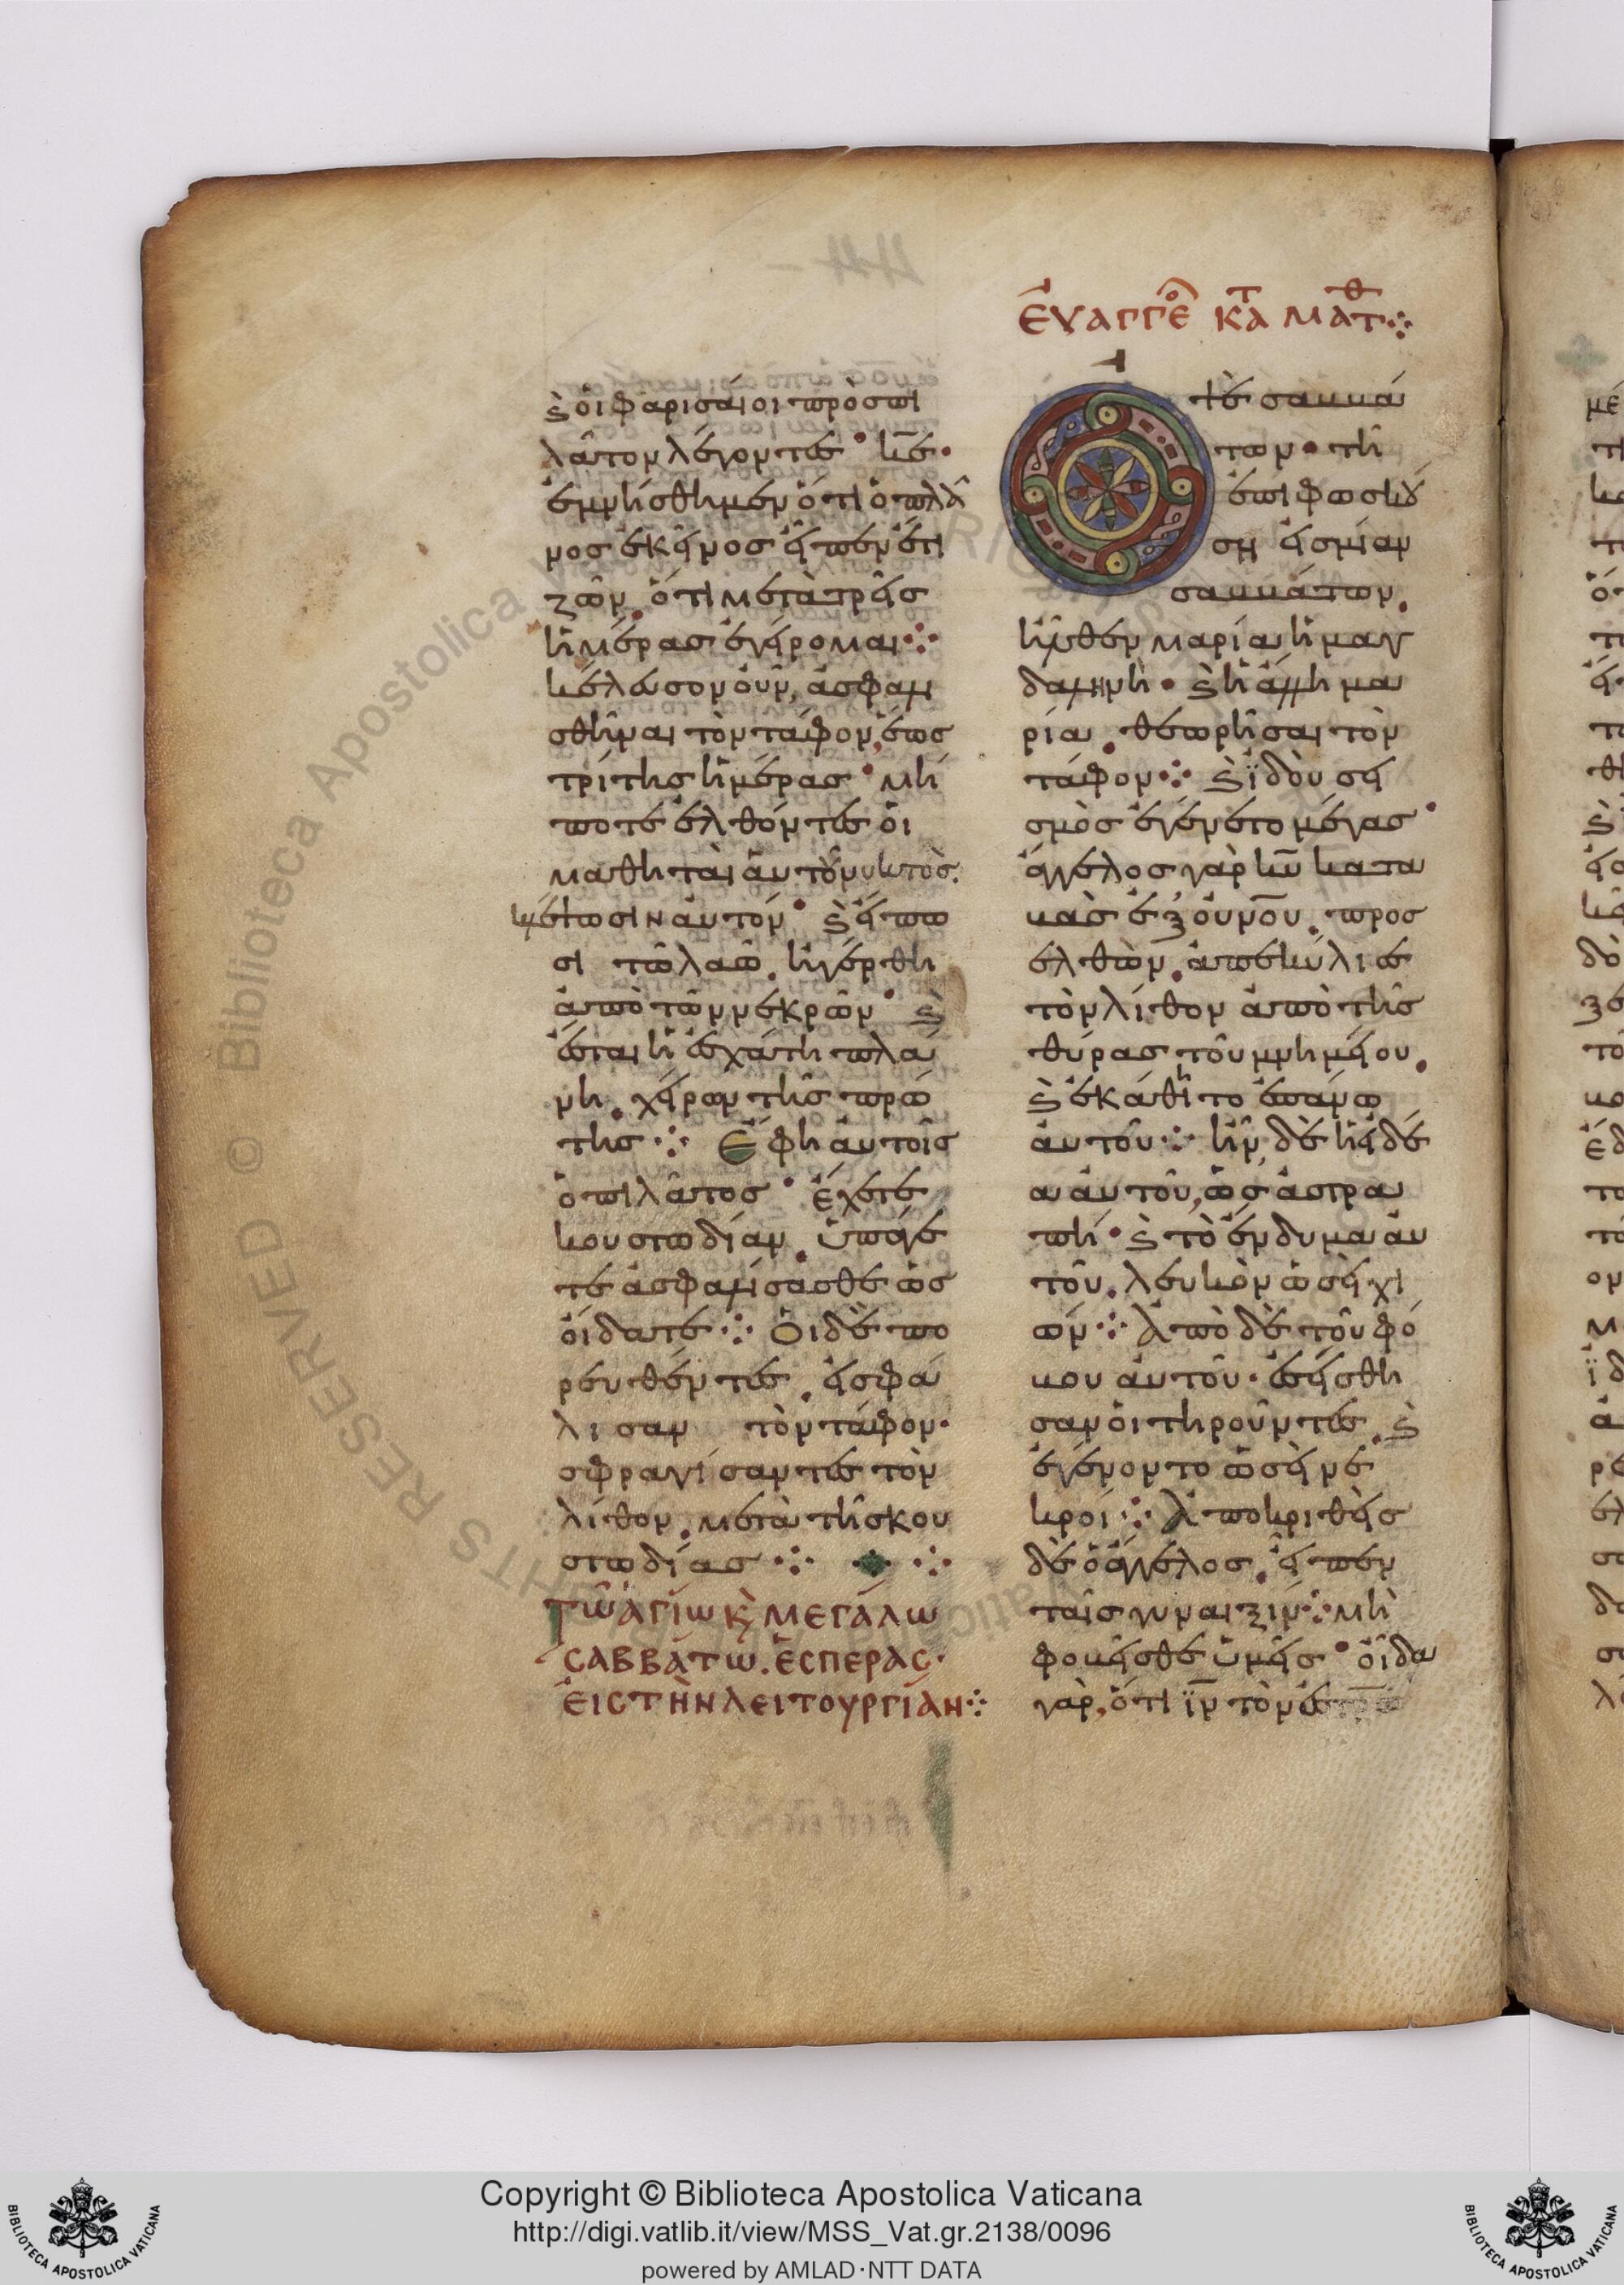 ϗ̀ οἱ φαρισαίοι πρὸς πι
λᾶτον λέγοντες· κ̅ε·
ἐμνήσθημεν ὅτι ὁ πλᾶ
νος ἐκεῖνος εἶπεν ἔτι
ζῶν. ὅτι μετὰ τρεῖς
ἡμέρας ἐγείρομαι⁘
κέλευσον οὖν, ἀσφαλι
σθῆναι τὸν τάφον, ἕως
τρίτης ἡμέρας· μή
ποτε ἐλθόντες οἱ
μαθηταὶ αὐτοῦ νυκτὸς.
κλέψωσιν αὐτόν· ϗ̀ εἴπω
σι τῶ λαῶ. ἠγέρθη
ἀπὸ τῶν νεκρῶν· ϗ̀
ἔσται ἡ ἐσχάτη πλά
νη. χείρων τῆς πρώ
της⁘ Ἔφη αὐτοῖς
ὁ πιλᾶτος· ἔχετε
κουστωδίαν. ὑπάγε
τε ἀσφαλίσασθε ὡς
οἴδατε⁘ Οἱ δὲ πο
ρευθέντες. ἠσφά
λισαν τὸν τάφον·
σφραγίσαντες τὸν
λίθον. μετὰ τῆς κου
στωδίας⁘ ⁘
ΤΩ ἉΓΙΩ Κ̀ ΜΕΓΑΛΩ
CΑΒΒΑΤΩ. ἙCΠΕΡΑC·
ΕἸC ΤῊΝ ΛΕΙΤΟΥΡΓΙΑΝ⁘
ΕΥΑΓΓΕ ΚΑΤ ΜΑΤΘ⁘
Ὀψὲ σαββά
των· τῆ
ἐπιφωσκού
ση εἰς μίαν
σαββάτων.
ἦλθεν μαρία ἡ μαγ
δαληνὴ· ϗ̀ ἡ ἄλλη μα
ρία. θεωρῆσαι τὸν
τάφον⁘ ϗ̀ ἰ̈δοὺ σει
σμὸς ἐγένετο μέγας·
ἄγγελος γὰρ κ̅υ̅ κατα
βὰς ἐξ οὐ̅ν̅ο̅υ̅. προσ
ελθὼν. ἀπεκύλισε
τὸν λίθον ἀπὸ τῆς
θύρας τοῦ μνημείου.
ϗ̀ ἐκάθητο ἐπάνω
αὐτοῦ⁘ ἦν δὲ ἡ εἰδέ
α αὐτοῦ, ὡς ἀστρα
πή· ϗ̀ τὸ ἔνδυμα αὐ
τοῦ. λευκὸν ὡσεὶ χι
ών⁘ Ἀπὸ δὲ τοῦ φό
βου αὐτοῦ· ἐσείσθη
σαν οἱ τηροῦντες. ϗ̀
ἐγένοντο ὡσεὶ νε
κροί⁘ Ἀποκριθεὶς
δὲ ὁ ἄγγελος. εἶπεν
ταῖς γυναιξίν⁘ μὴ
φοβεῖσθε ὑμεῖς· οἶδα
γὰρ, ὅτι ι̅ν̅ τὸν ἐστρω
Copyright © Biblioteca Apostolica Vaticana
http://digi.vatlib.it/view/MSS_Vat.gr.2138/0096
powered by AMLAD·NTT DATA
BIBLIOTECA APOSTOLICA VATICANA
BIBLIOTECA APOSTOLICA VATICANA